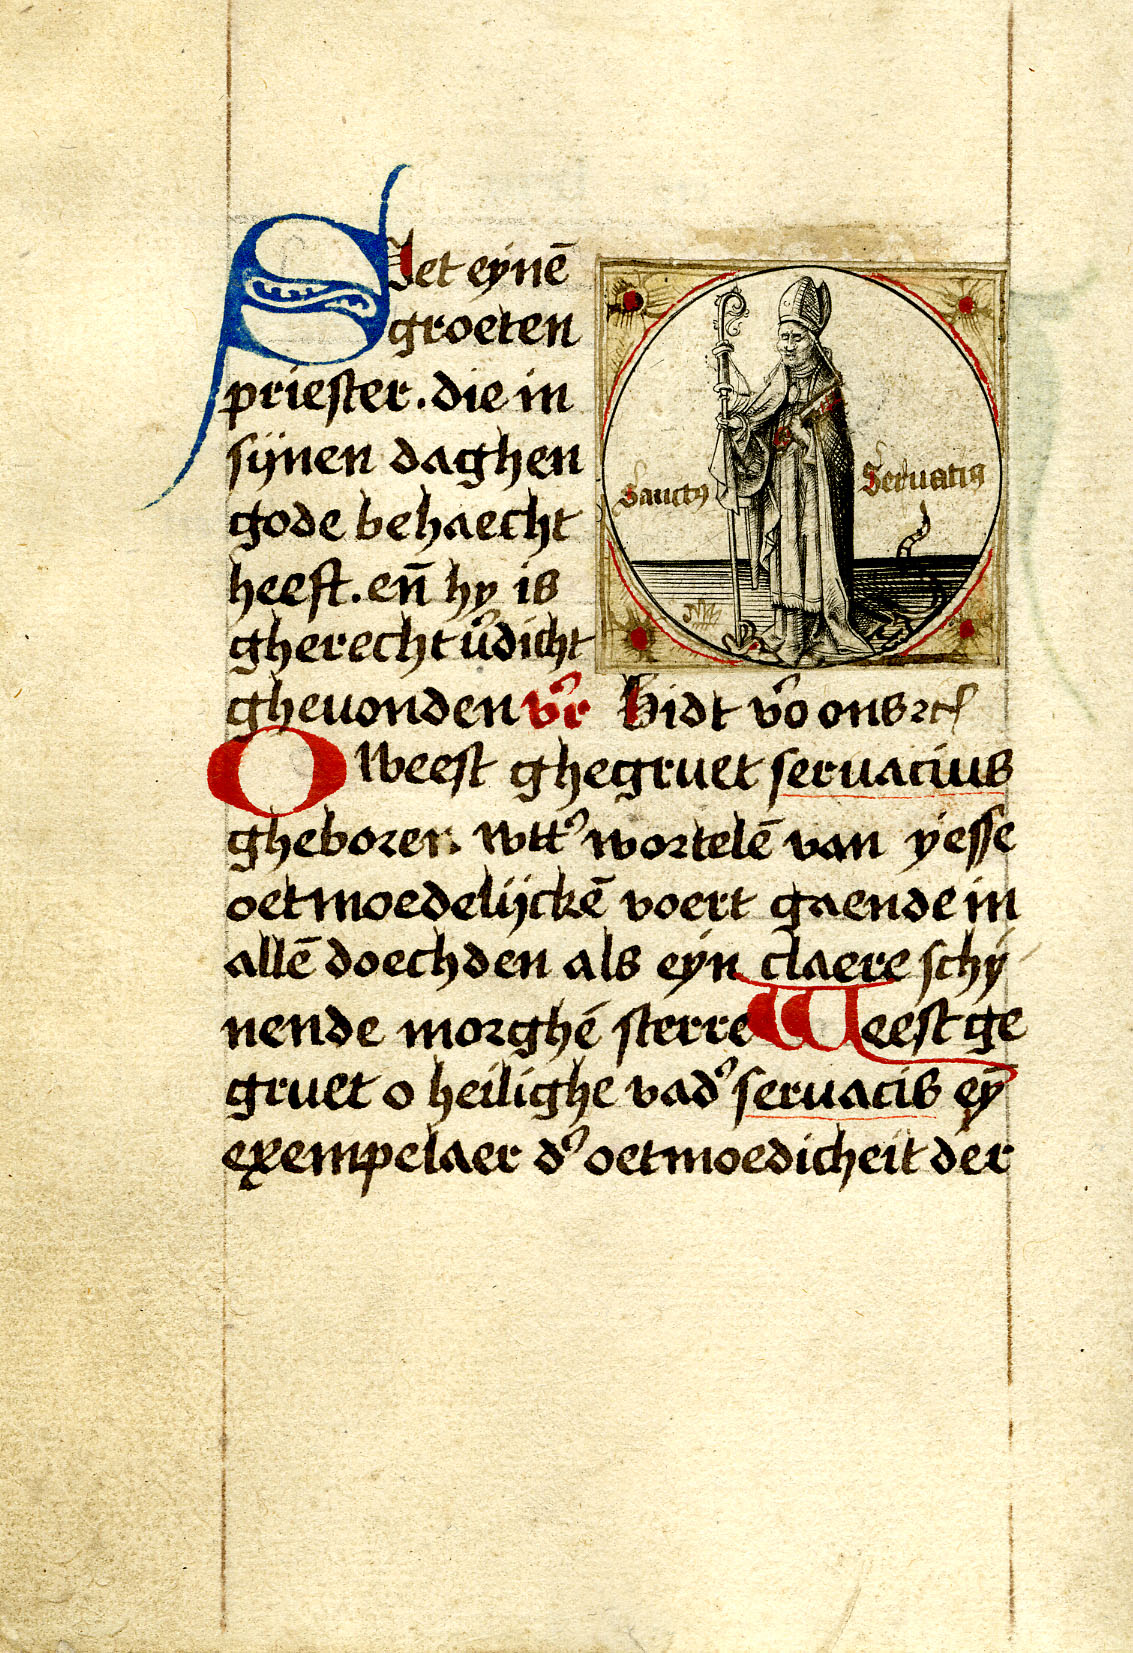 Siet eynē
groeten
priester. die in
sijnen daghen
gode behaecht
heeft. en̄ hy is
gherecht v̓dicht
gheuonden v̓s Bidt vo̓ ons ⁊c̄
Sanctus Seruatius
O Weest ghegruet seruacius
gheboren wtt᾽ wortelē van yesse
oetmoedelijckē voert gaende in
allē doechden als eyn claere schy
nende morghē sterre Weest ge
gruet o heilighe vad᾽ seruacis ey
exempelaer d᾽ oetmoedicheit der